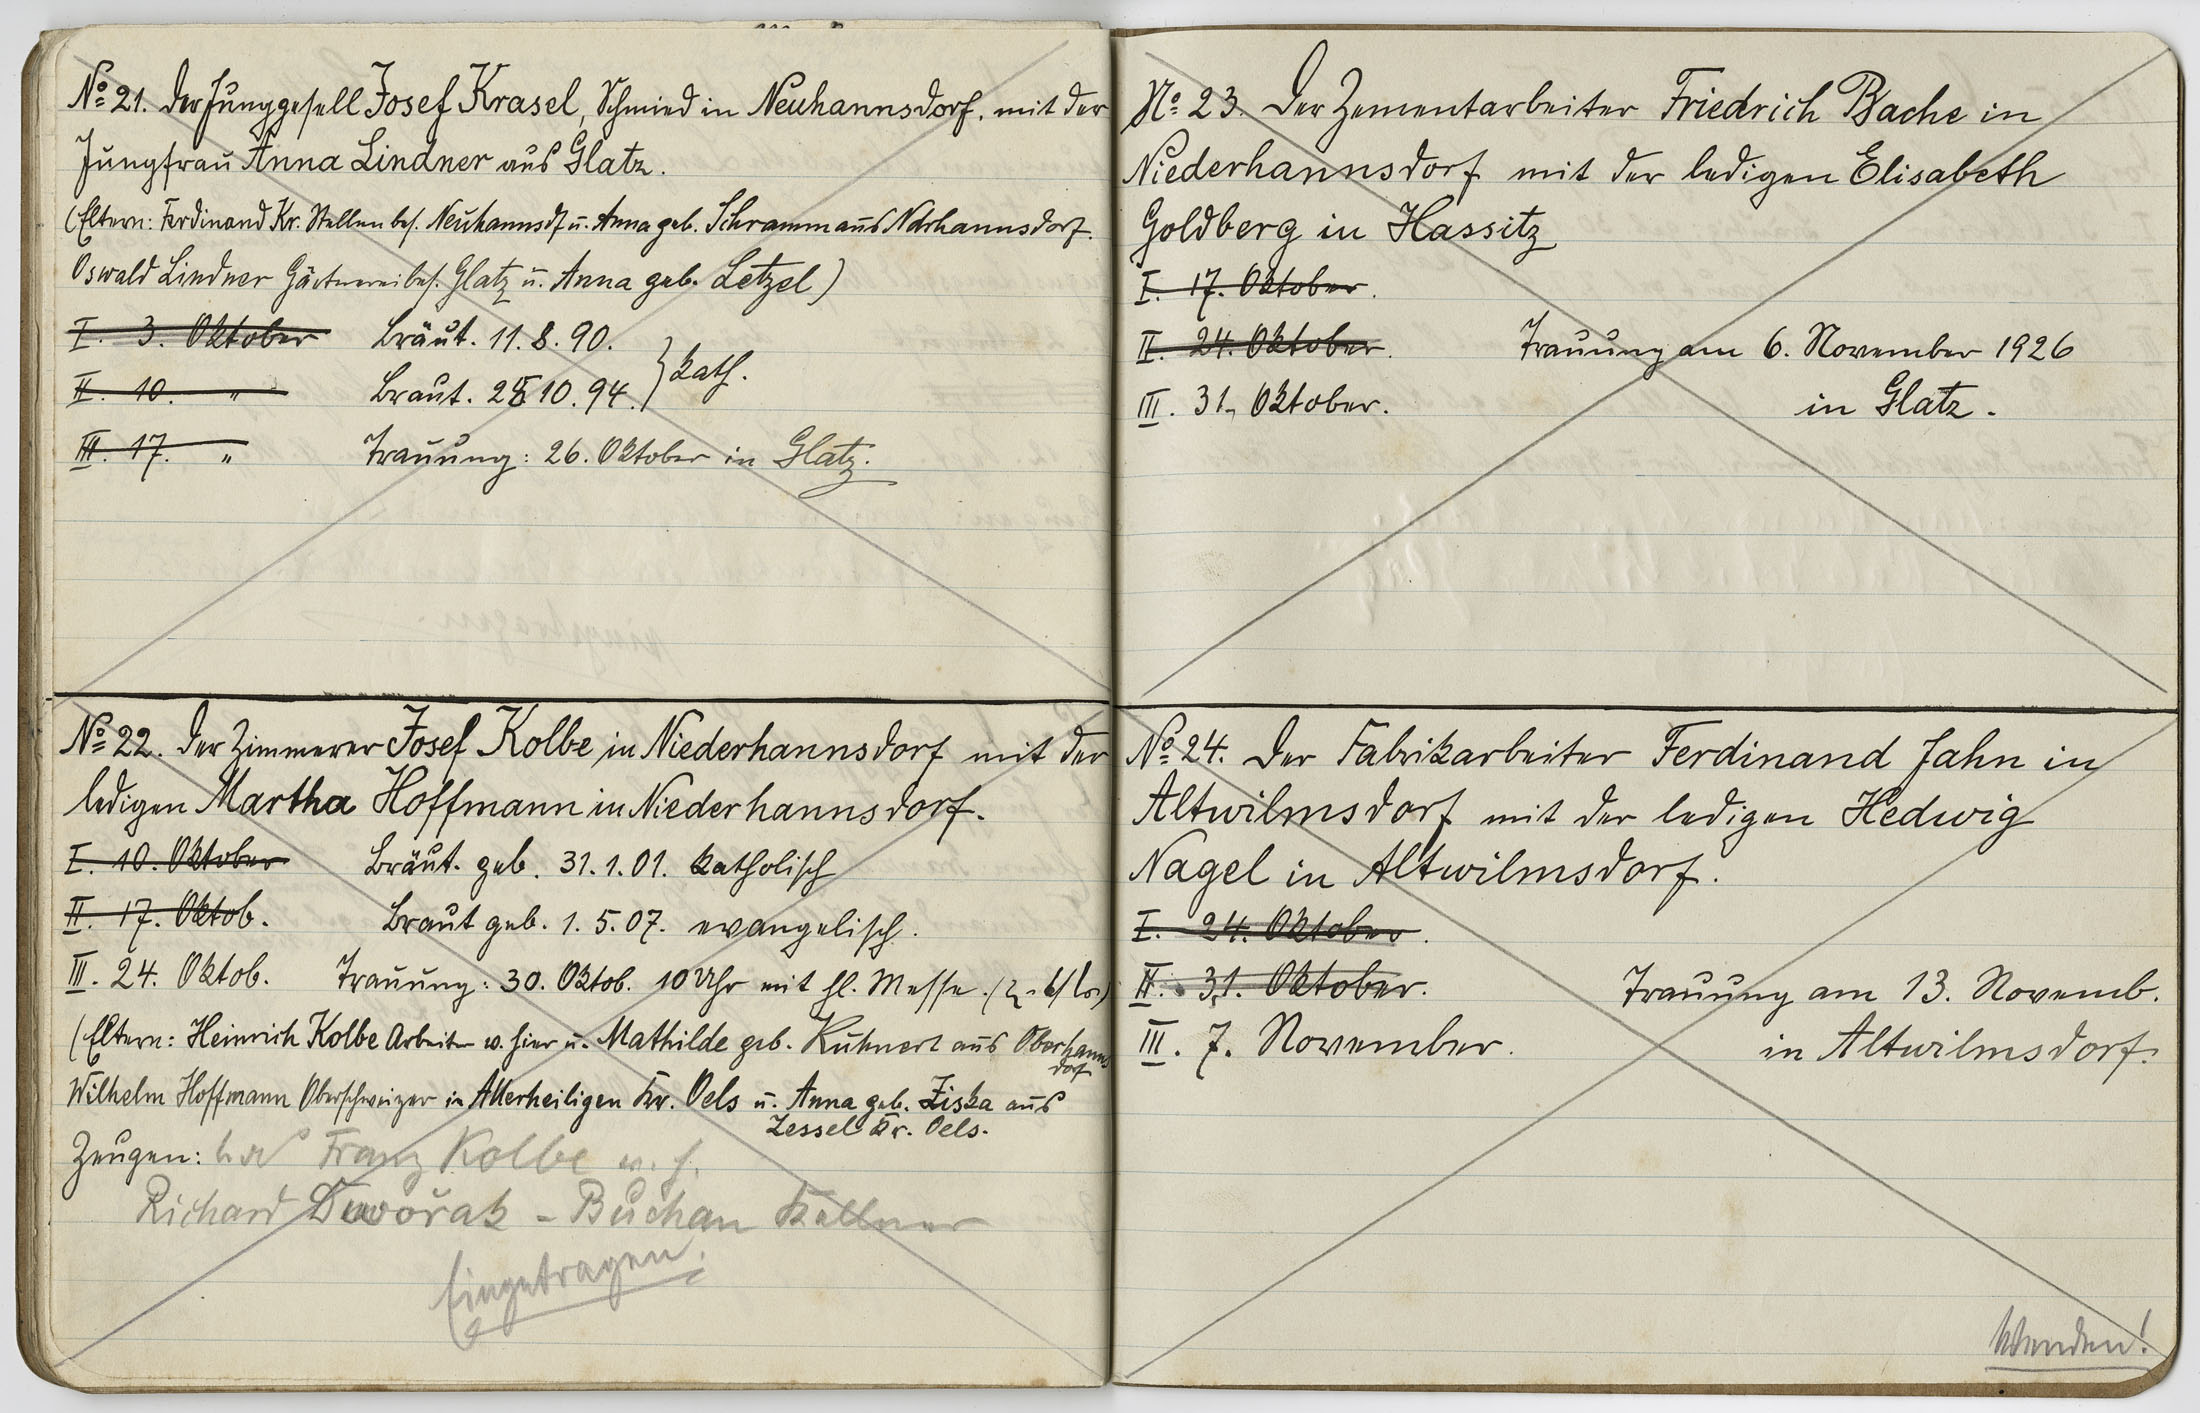 No 21. Der Junggesell Josef Krasel, Schmied in Neuhannsdorf, mit der
Jungfrau Anna Lindner aus Glatz.
(Eltern: Ferdinand Kr. Stellenbes. Neuhannsdf u. Anna geb. Schramm aus Ndrhannsdorf.
Oswald Lindner Gärtnereibes. Glatz u. Anna geb. Letzel)
I. 3. Oktober Bräut. 11.8.90.
II. 10. " Braut. 10.94. } kath.
III. 17. " Trauung: 26. Oktober in Glatz.
No 22. Der Zimmerer Josef Kolbe in Niederhannsdorf mit der
ledigen Martha Hoffmann in Niederhannsdorf.
I. 10. Oktober Bräut. geb. 31.1.01. katholisch
II. 17. Oktob. Braut geb. 1.5.07. evangelisch.
III. 24. Oktob. Trauung: 30. Oktob. 10 Uhr mit hl. Messe.
(Eltern: Heinrich Kolbe Arbeiter v. hier u. Mathilde geb. Kuhnert aus Oberhanns
dorf
Wilhelm Hoffmann Oberschweizer in Allerheiligen Kr. Oels u. Anna geb. Ziska aus
Zessel Kr. Oels.
Zeugen: Franz Kolbe v. h.
Richard Dwořak - Buchau Kellner
Eingetragen.
No 23. Der Zementarbeiter Friedrich Bache in
Niederhannsdorf mit der ledigen Elisabeth
Goldberg in Hassitz
I. 17. Oktober.
II. 24. Oktober. Trauung am 6. November 1926
III. 31. Oktober. in Glatz.
No 24. Der Fabrikarbeiter Ferdinand Jahn in
Altwilmsdorf mit der ledigen Hedwig
Nagel in Altwilmsdorf.
I. 24. Oktober.
II. 31. Oktober. Trauung am 13. Novemb.
III. 7. November. in Altwilmsdorf.
Wenden!